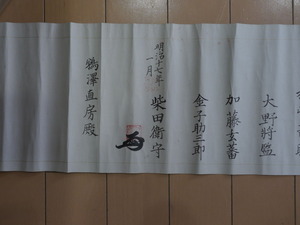 大野將監
加藤玄蕃
金子助三郎
明治十七年
一月
柴田衞守
鵜澤直房殿